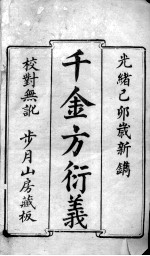 光緒己卯歲新鐫
千金方衍義
校對無訛 步月山房藏板